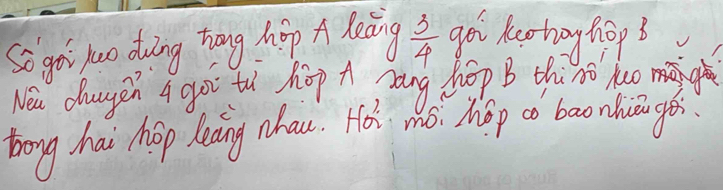 Số gói kẹo đựng trong hộp A bằng 3/4 gói kẹo trong hộp B
Nếu chuyển 4 gói từ hộp A sang hộp B thì số kẹo
trong hai hộp bằng nhau. Hỏi mỗi hộp có bao nhiêu gói.